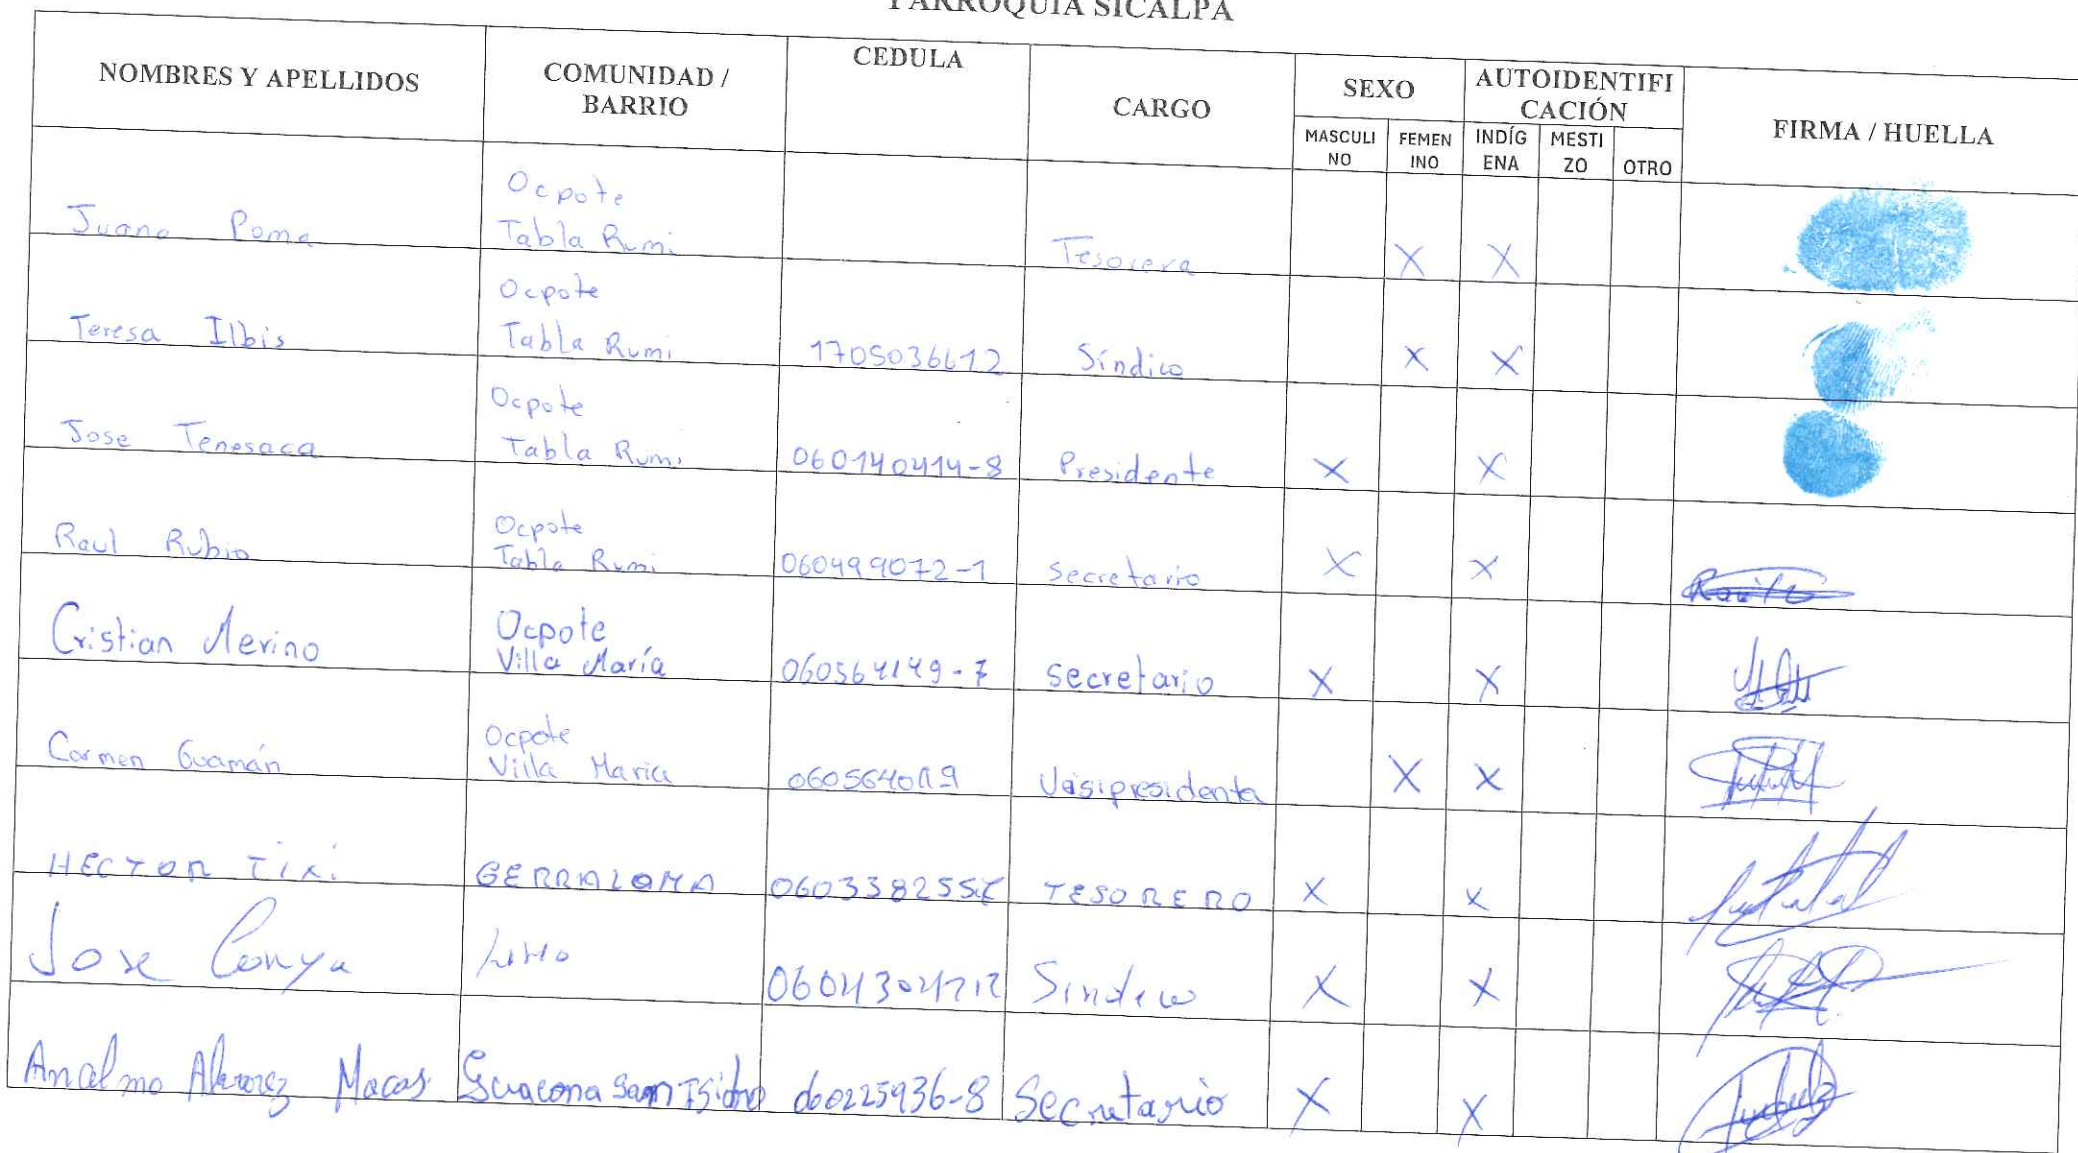 PARROQUIA SICALPA
NOMBRES Y APELLIDOS COMUNIDAD / BARRIO CEDULA CARGO SEXO AUTOIDENTIFI CACIÓN FIRMA / HUELLA
MASCULI NO FEMEN INO INDÍG ENA MESTI ZO OTRO
Juana Poma Ocpote Tabla Rumi Tesorera X X
Teresa Ilbis Ocpote Tabla Rumi 1705036612 Síndico X X
Jose Tenesaca Ocpote Tabla Rumi 060140414-8 Presidente X X
Raul Rubio Ocpote Tabla Rumi 060499072-1 Secretario X X
Cristian Merino Ocpote Villa María 060564149-7 secretario X X
Carmen Guamán Ocpote Villa Maria Vasipresidenta X X
HECTOR TIXI GERRALOMA TESORERO X X
Jose Conya Síndico X X
Analmo Alvarez Macas Guacona San Isidro 060225936-8 Secretario X X